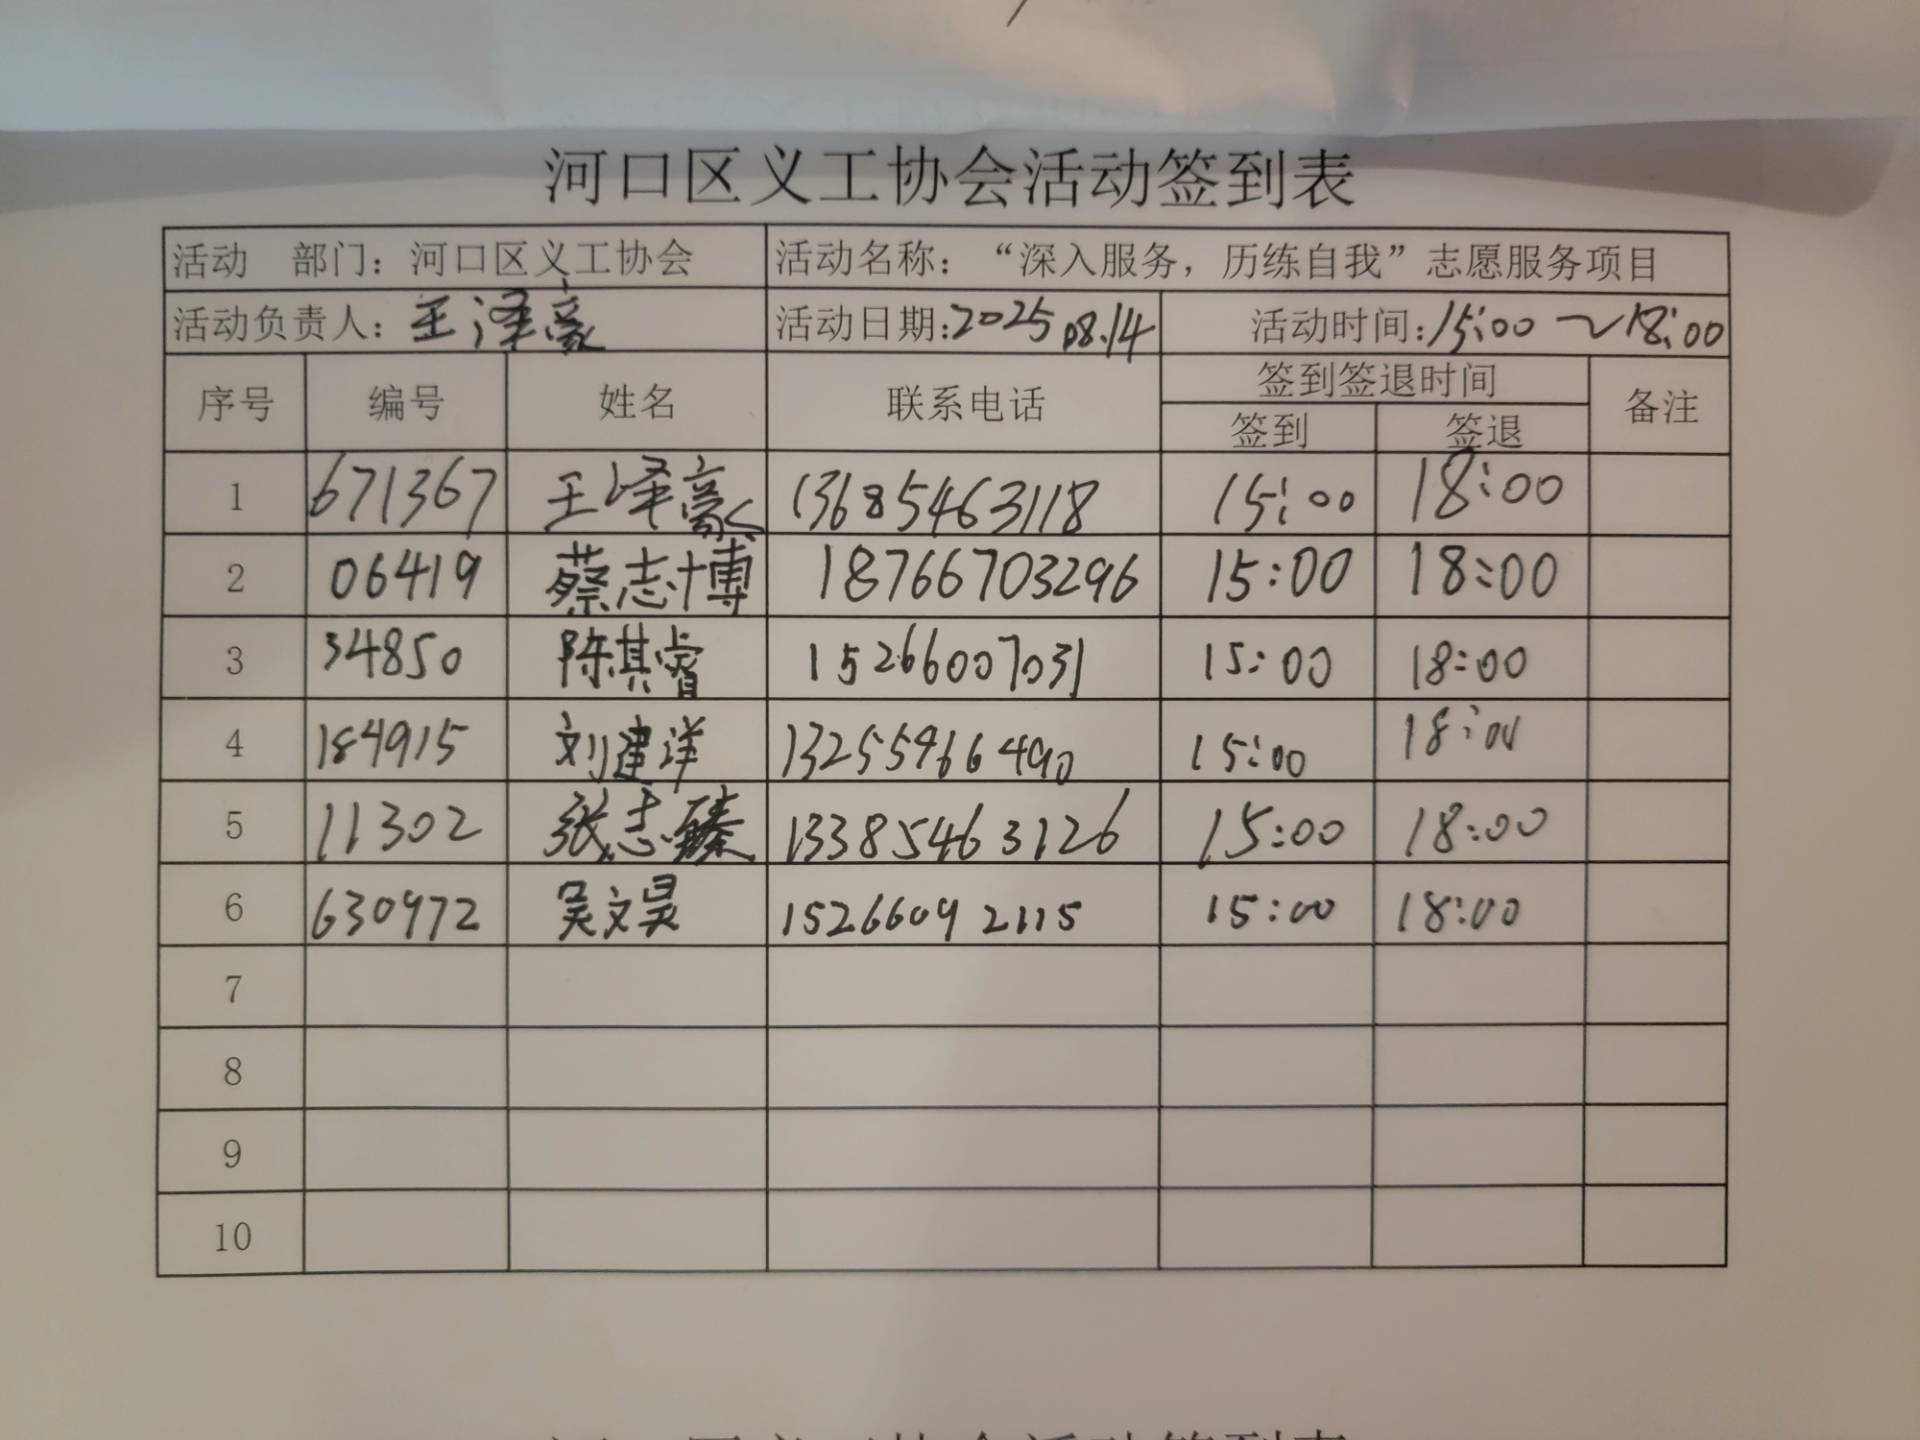 河口区义工协会活动签到表
活动 部门：河口区义工协会 活动名称：“深入服务，历练自我”志愿服务项目
活动负责人：王泽豪 活动日期：2025.08.14 活动时间：15:00～18:00
序号 编号 姓名 联系电话 签到签退时间 备注
签到 签退
1 671367 王泽豪 13685463118 15:00 18:00
2 06419 蔡志博 18766703296 15:00 18:00
3 34850 陈其睿 15266007031 15:00 18:00
4 184915 刘建洋 13255966490 15:00 18:00
5 11302 张志臻 13385463126 15:00 18:00
6 630972 吴文昊 15266092115 15:00 18:00
7
8
9
10